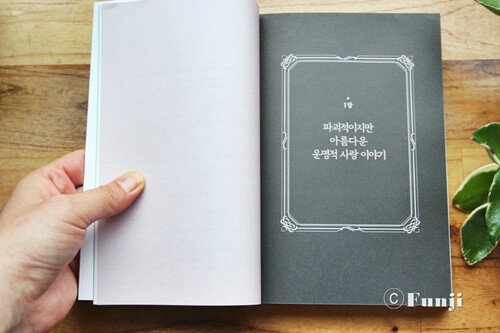 1장
파괴적이지만
아름다운
운명적 사랑 이야기
© Funji